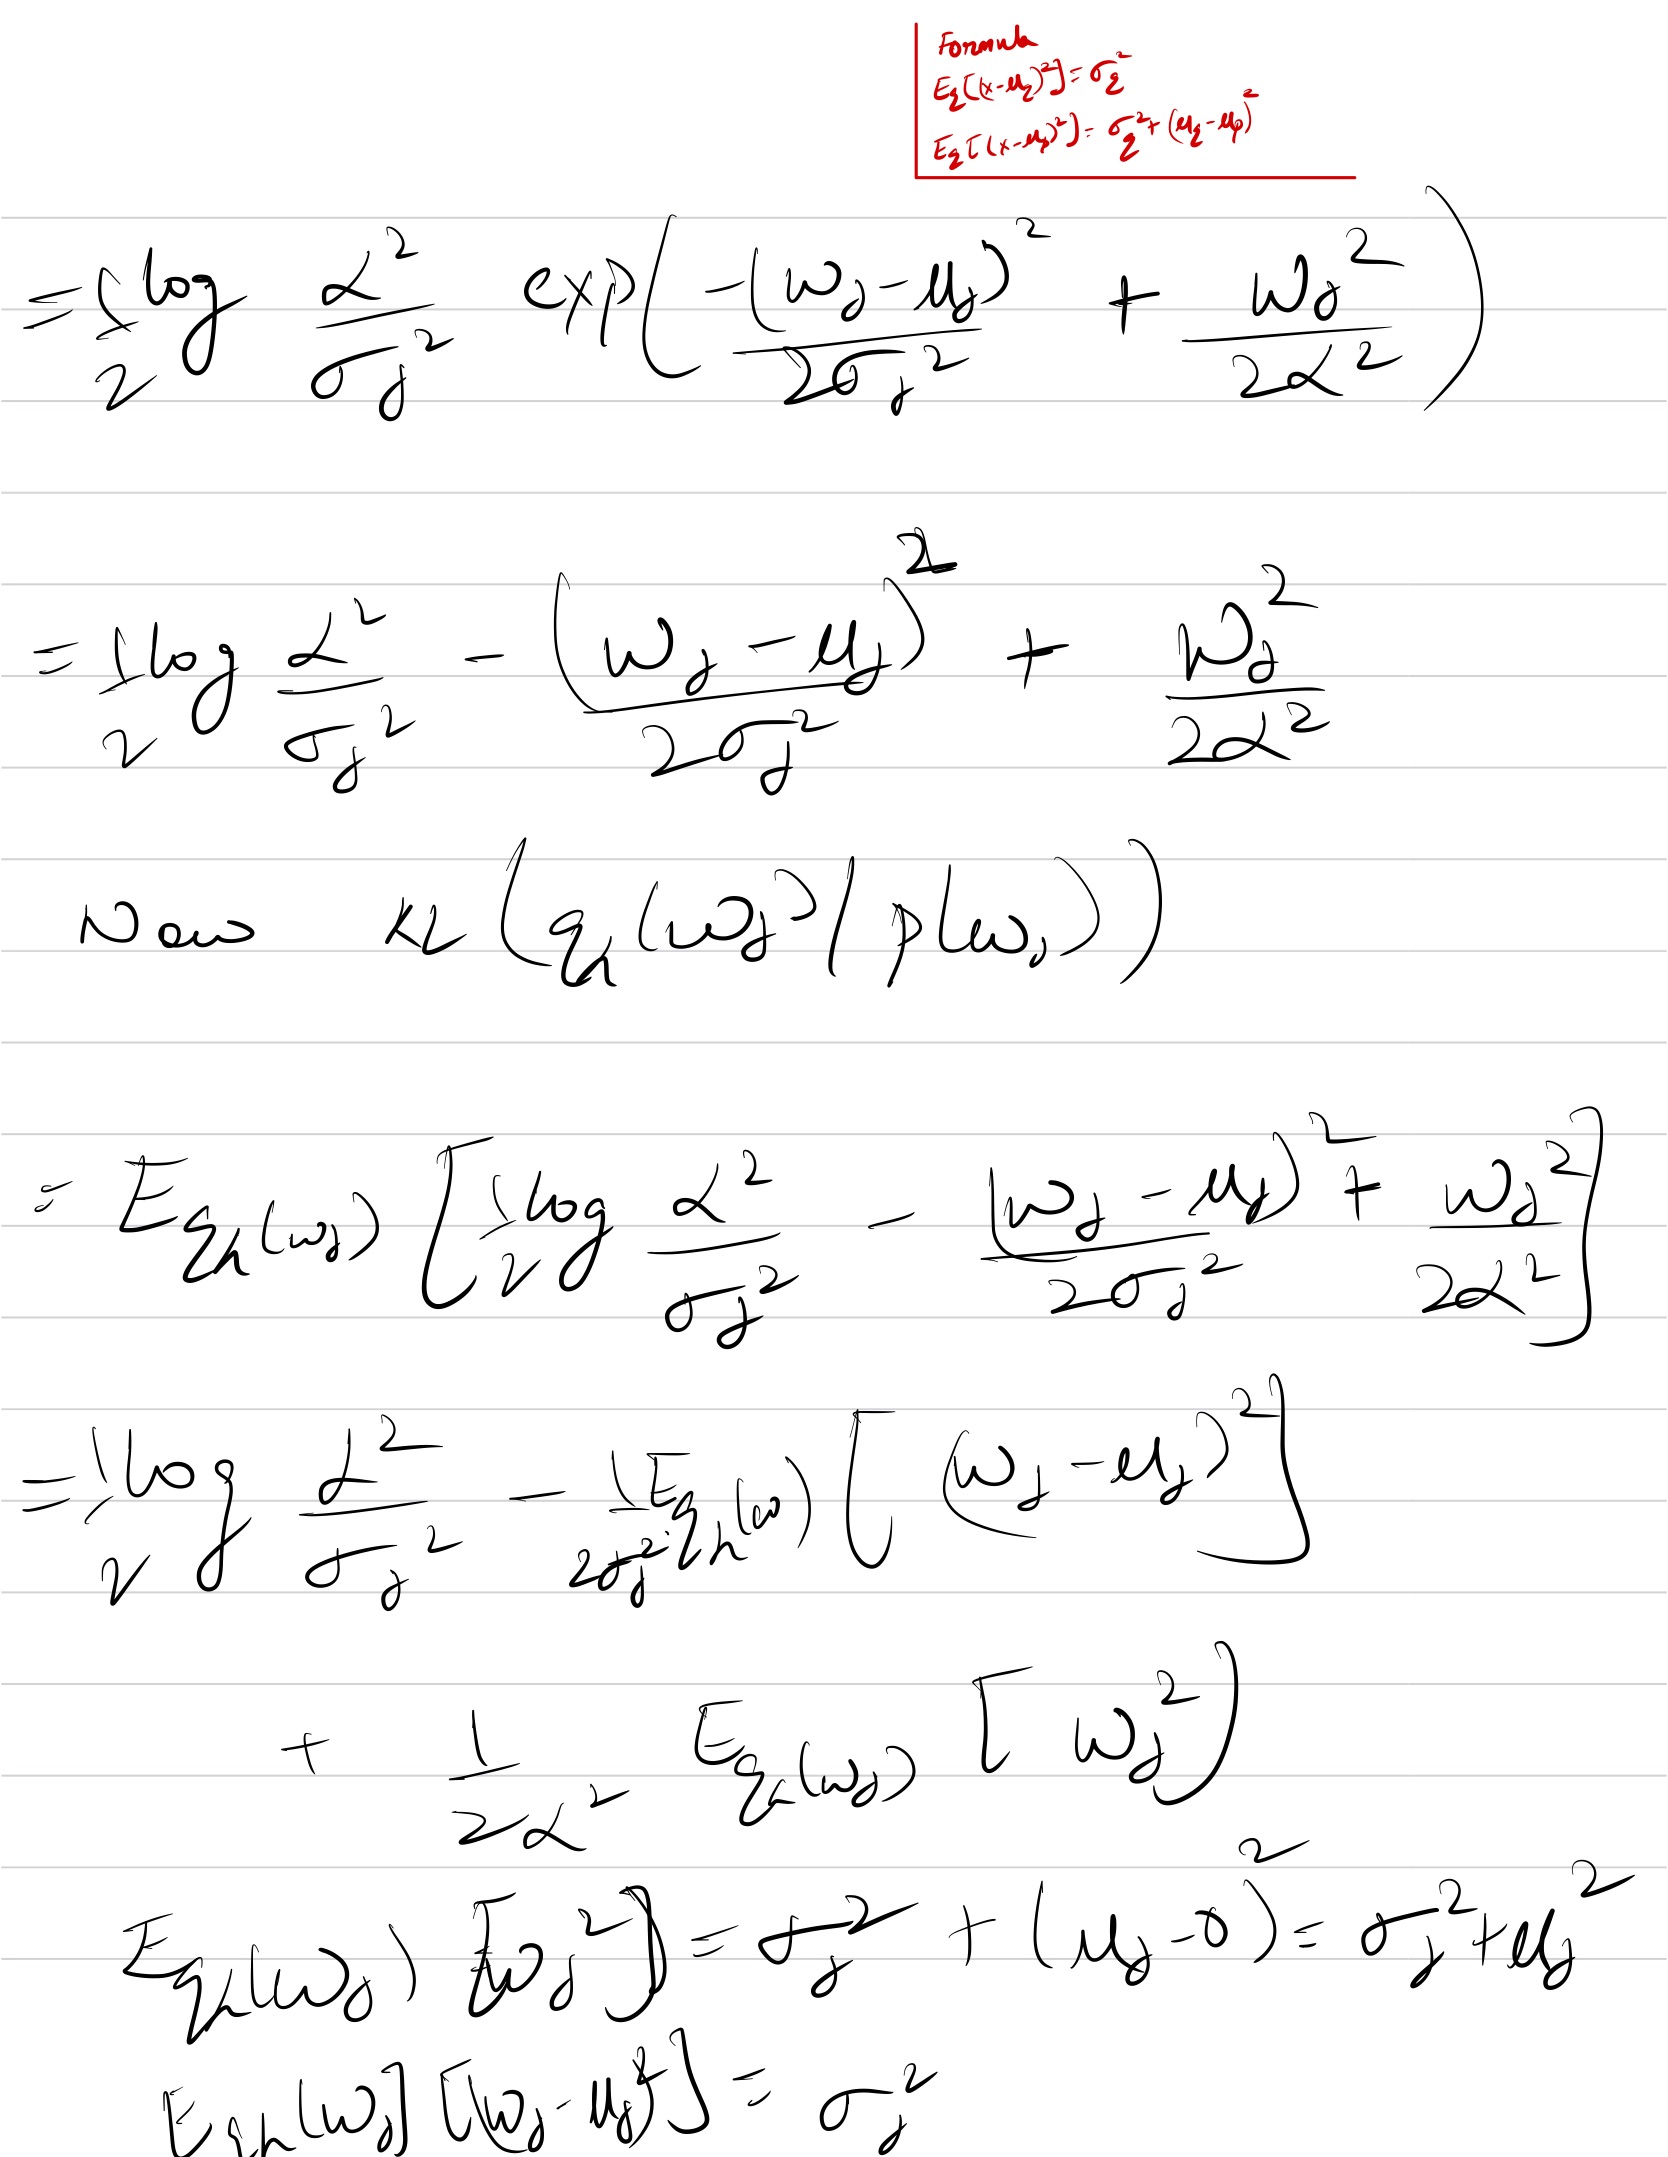 Formula
E_q[(x-μ_q)²] = σ_q²
E_q[(x-μ_p)²] = σ_q² + (μ_q-μ_p)²
= 1/2 log α²/σ_j² exp( -(w_j-μ_j)²/2σ_j² + w_j²/2α² )
= 1/2 log α²/σ_j² - (w_j-μ_j)²/2σ_j² + w_j²/2α²
Now KL(q_λ(w_j) / p(w_j))
= E_{q_λ(w_j)} [ 1/2 log α²/σ_j² - (w_j-μ_j)²/2σ_j² + w_j²/2α² ]
= 1/2 log α²/σ_j² - 1/2σ_j² E_{q_λ(w)} [ (w_j-μ_j)² ]
+ 1/2α² E_{q_λ(w_j)} [ w_j² )
E_{q_λ(w_j)} [w_j²] = σ_j² + (μ_j-0)² = σ_j² + μ_j²
E_{q_λ(w_j]} [(w_j-μ_j)²] = σ_j²